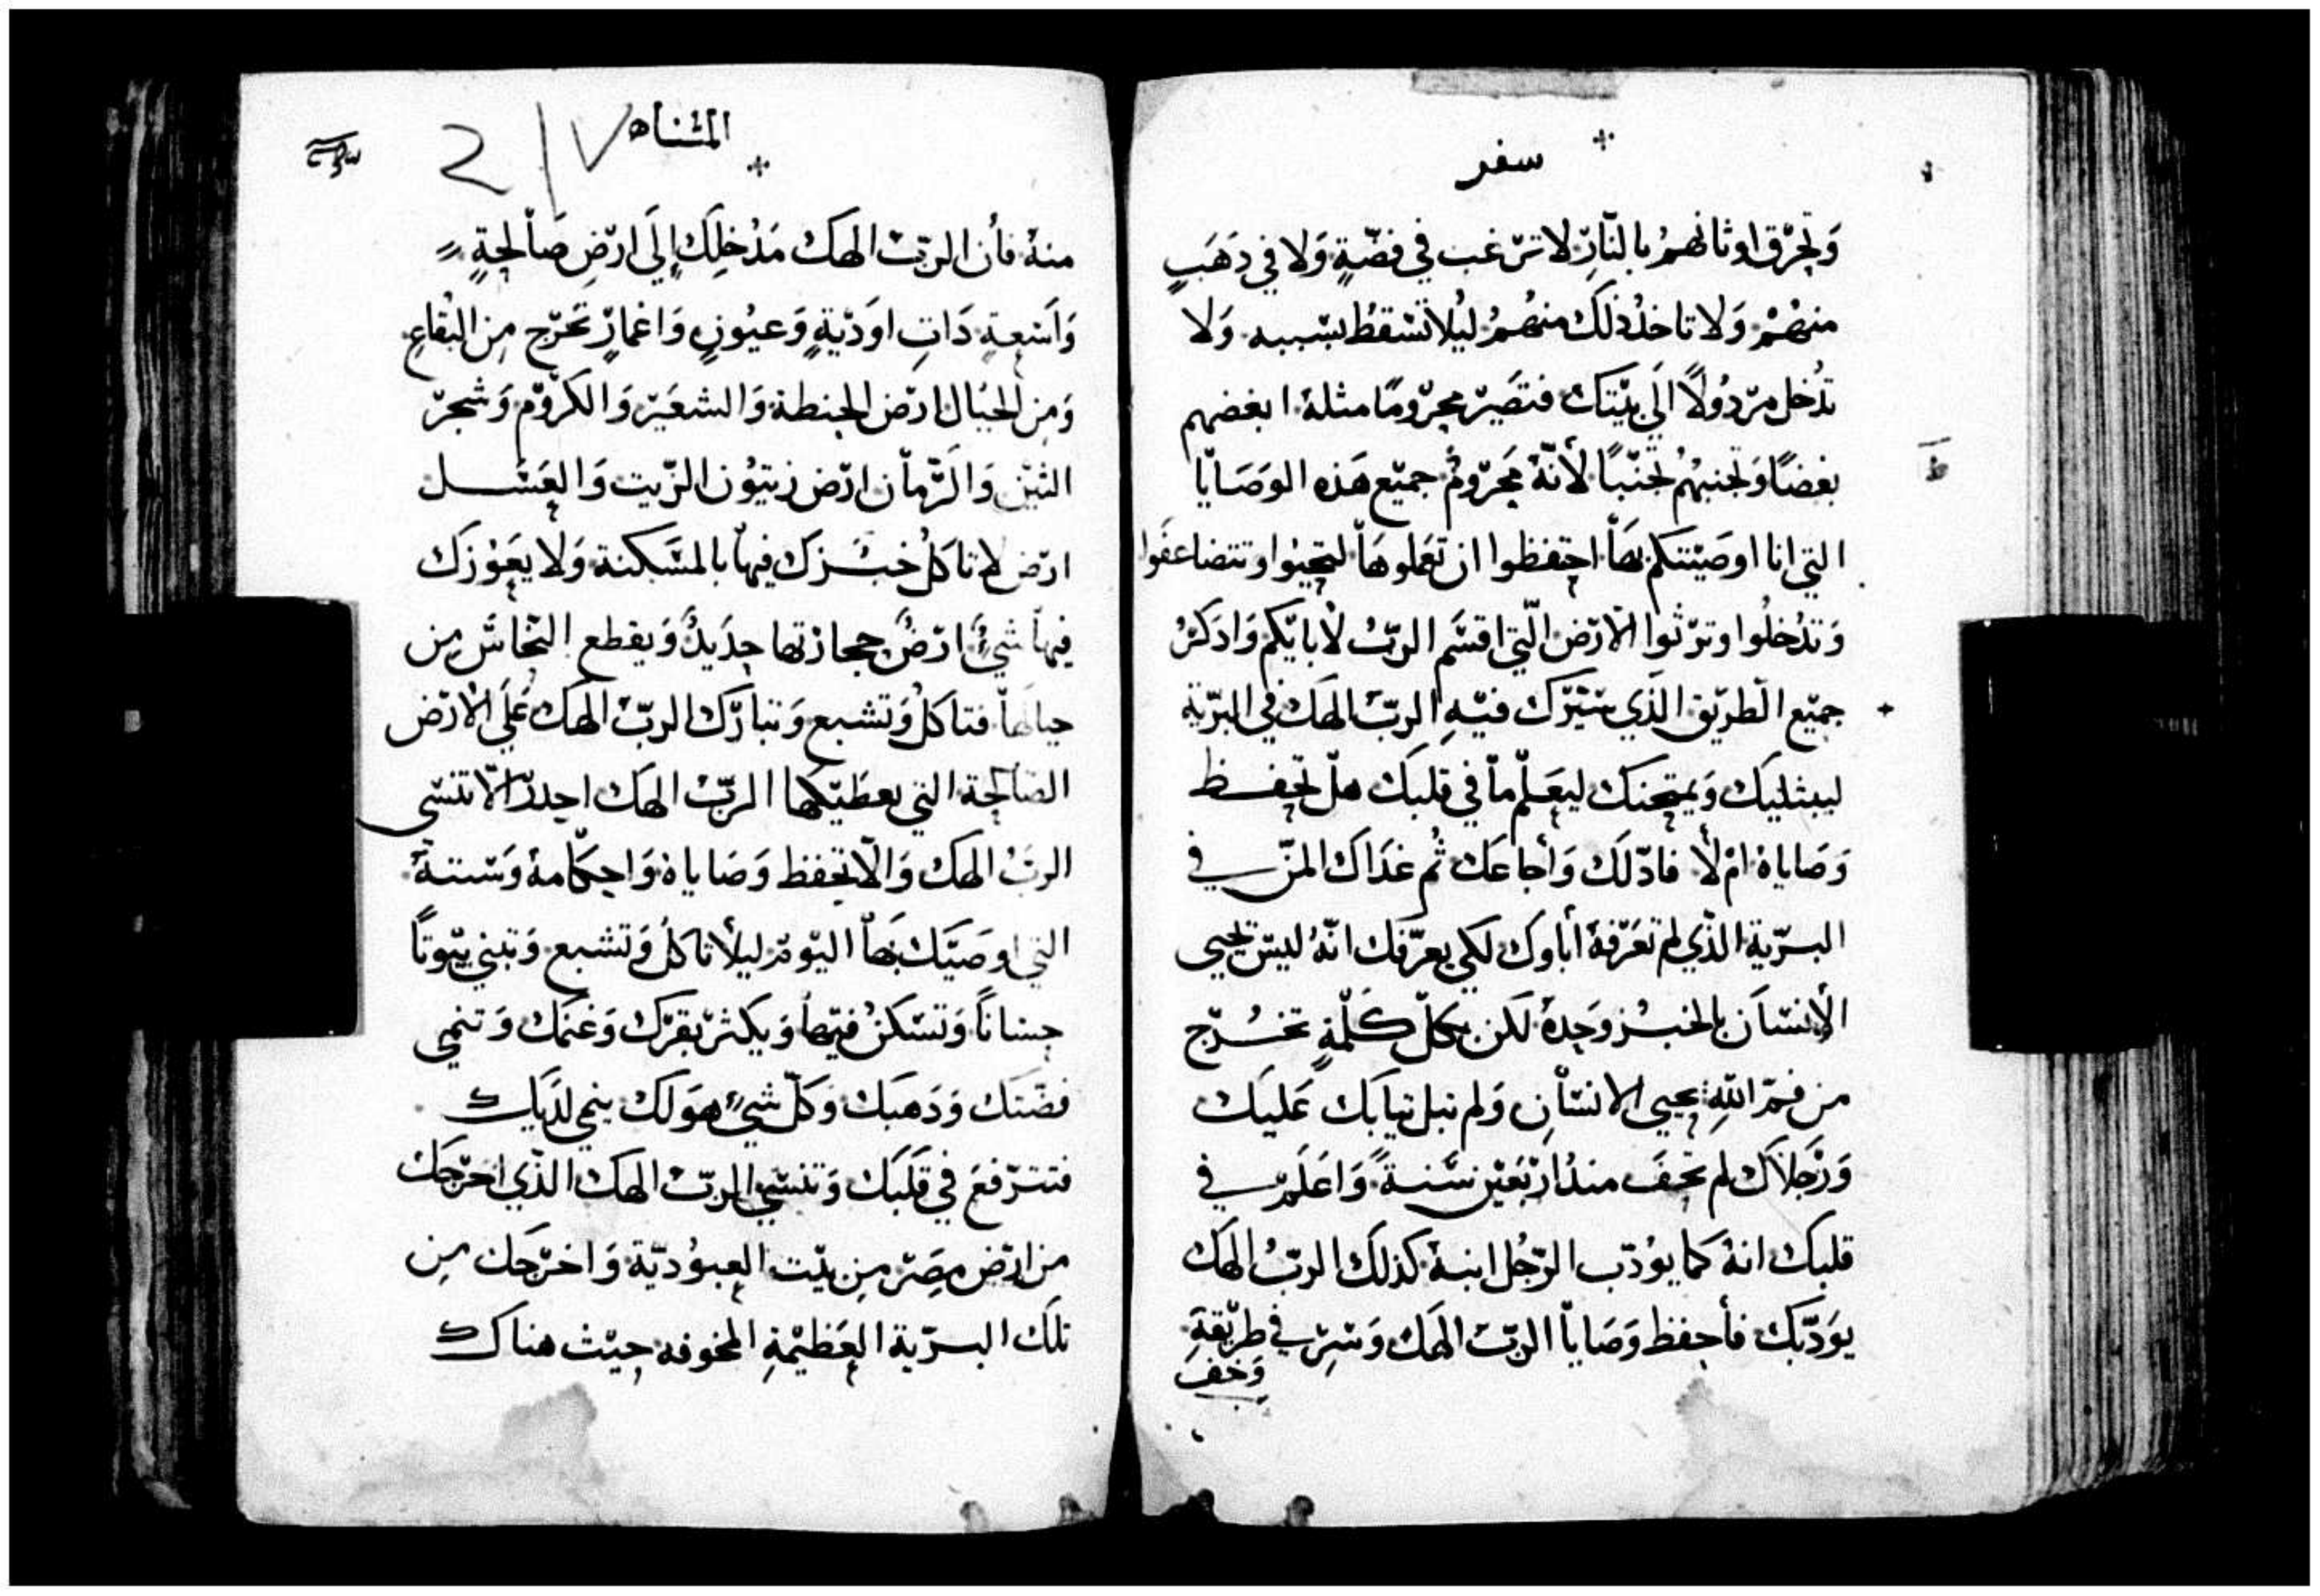 سفر
وَتحرّق اوثانهمُ بالنّارِ لا ترّغب في فضّةٍ وَلا في دَهَبٍ
منهُمْ وَلا تاخدُ ذلك منهُمُ ليُلا تسْقطُ بسْببه وَلا
تدُخل مرّدُولاً الَي بيْتكَ فتصَيرّ محرّومًا مثلهُ ابغضهم
بغضًا وَتجنبهُم تجنّبًا لأنّهُ مَحرّومٌ جميْع هَذه الوَصَايا
التي انا اوصَيْتكم بهَا احتفظوا ان تعَملوهَا لتحيُوا وتتضاعفَوا
وَتدُخلُوا وترّثوا الارّض الّتي اقسَم الربّ لابايّكم وَادكرُ
جميْع الطريّق الذَي سَيّرَك فيْهِ الربّ الهَك في البرّية
ليبتليك وَيمتحنك ليعَلم مَا في قلبَك هلّ تحفظ
وَصَاياهُ امْ لا فادّلَك وَأجاعَك ثُم غدَاكَ المنّ في
البرّية الذّي لم تعَرّفهُ أباوك لكي يعرّفك انهُ ليسْ يحيي
الأنسَان بالخبُز وَحدهُ لكن بكلّ كلَمّةٍ تخرُج
من فمّ اللهِ يحيي الانسَانِ وَلم تبل تيابَك عَليَك
وَرّجَلاكَ لم تحفَ مندُ ارّبعَيْن سَنةً وَاعَلَم في
قلبك انهُ كما يوُدّب الرّجُل ابنهُ كذلكَ الربّ الهَك
يوَدّبك فأحفظ وَصَايا الربّ الهَك وَسِرّ في طريّقهِ
وَخَف
المثناه
217
منهُ فأن الربّ الهَك مَدُخلِك إلَي ارّضٍ صَالحةٍ
وَاسَعةٍ دَاتِ اودّيةٍ وَعيُونٍ وَاغمارٍ تخرّج مِن البُقاعِ
وَمِن الجبَال ارّض الحِنطة وَالشعيَرّ وَالكرّوّم وَشجرّ
التيْن وَالرّمان ارّض زيتيُون الزّيت وَالعَسَل
ارّض لا تاكلُ خبَزك فيها بالمسَكنة وَلا يعَوُزك
فيها شئُ ارّضٌ حجارّتها حدَيدٌ وَيقطع النحَاسَ مِن
جبالهَا فتاكلُ وَتشبع وَتبارّك الربّ الهَك عَلَي الارّض
الصَالحة التي يعطَيّكها الربّ الهك احدرّ الا تنسَي
الربّ الهَك وَالا تحفظ وَصَاياهُ وَاحكامهُ وَسَننهُ
التي اوصَيّك بهَا اليّومّ ليلأ تاكلُ وَتشبع وَتبني بيْوتًا
حِسَاناً وَتسَكنُ فيّها وَيكثرّ بقرّك وَغنمَك وَتنمي
فضّتك وَدَهبَك وَكلّ شيءٍ هوَ لك ينمي لدَيك
فتترّفعَ في قلَبَك وَتنسَي الربّ الهك الذّي اخرّجَك
من ارّض مصَرّ مِن بيّت العبوُدّيّة وَاخرّجَك مِن
تلَك البرّية العَظيْمةِ المخوفه حيْث هناك